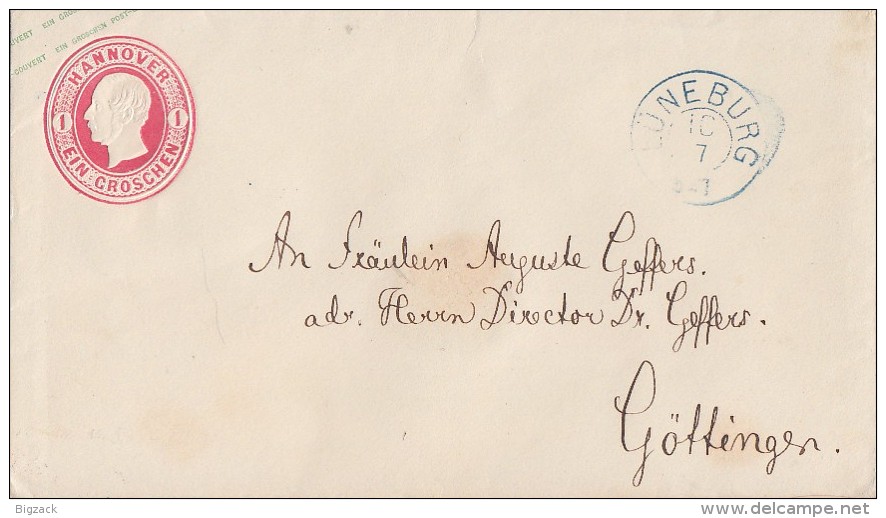 COUVERT EIN GROSCHEN POST-
HANNOVER
1 1
EIN GROSCHEN
LÜNEBURG
10
7
An Fräulein Auguste Geffers.
adr. Herrn Director Dr. Geffers.
Göttingen.
Bigzack
www.delcampe.net